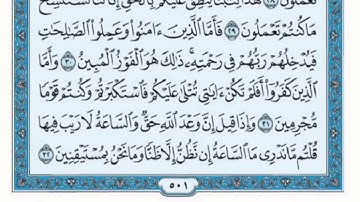 تَعْمَلُونَ ﴿٢٨﴾ هَٰذَا كِتَٰبُنَا يَنطِقُ عَلَيْكُم بِٱلْحَقِّ إِنَّا كُنَّا نَسْتَنسِخُ
مَا كُنتُمْ تَعْمَلُونَ ﴿٢٩﴾ فَأَمَّا ٱلَّذِينَ ءَامَنُوا۟ وَعَمِلُوا۟ ٱلصَّٰلِحَٰتِ
فَيُدْخِلُهُمْ رَبُّهُمْ فِى رَحْمَتِهِۦ ۚ ذَٰلِكَ هُوَ ٱلْفَوْزُ ٱلْمُبِينُ ﴿٣٠﴾ وَأَمَّا
ٱلَّذِينَ كَفَرُوٓا۟ أَفَلَمْ تَكُنْ ءَايَٰتِى تُتْلَىٰ عَلَيْكُمْ فَٱسْتَكْبَرْتُمْ وَكُنتُمْ قَوْمًا
مُّجْرِمِينَ ﴿٣١﴾ وَإِذَا قِيلَ إِنَّ وَعْدَ ٱللَّهِ حَقٌّ وَٱلسَّاعَةُ لَا رَيْبَ فِيهَا
قُلْتُم مَّا نَدْرِى مَا ٱلسَّاعَةُ إِن نَّظُنُّ إِلَّا ظَنًّا وَمَا نَحْنُ بِمُسْتَيْقِنِينَ ﴿٣٢﴾
٥٠١